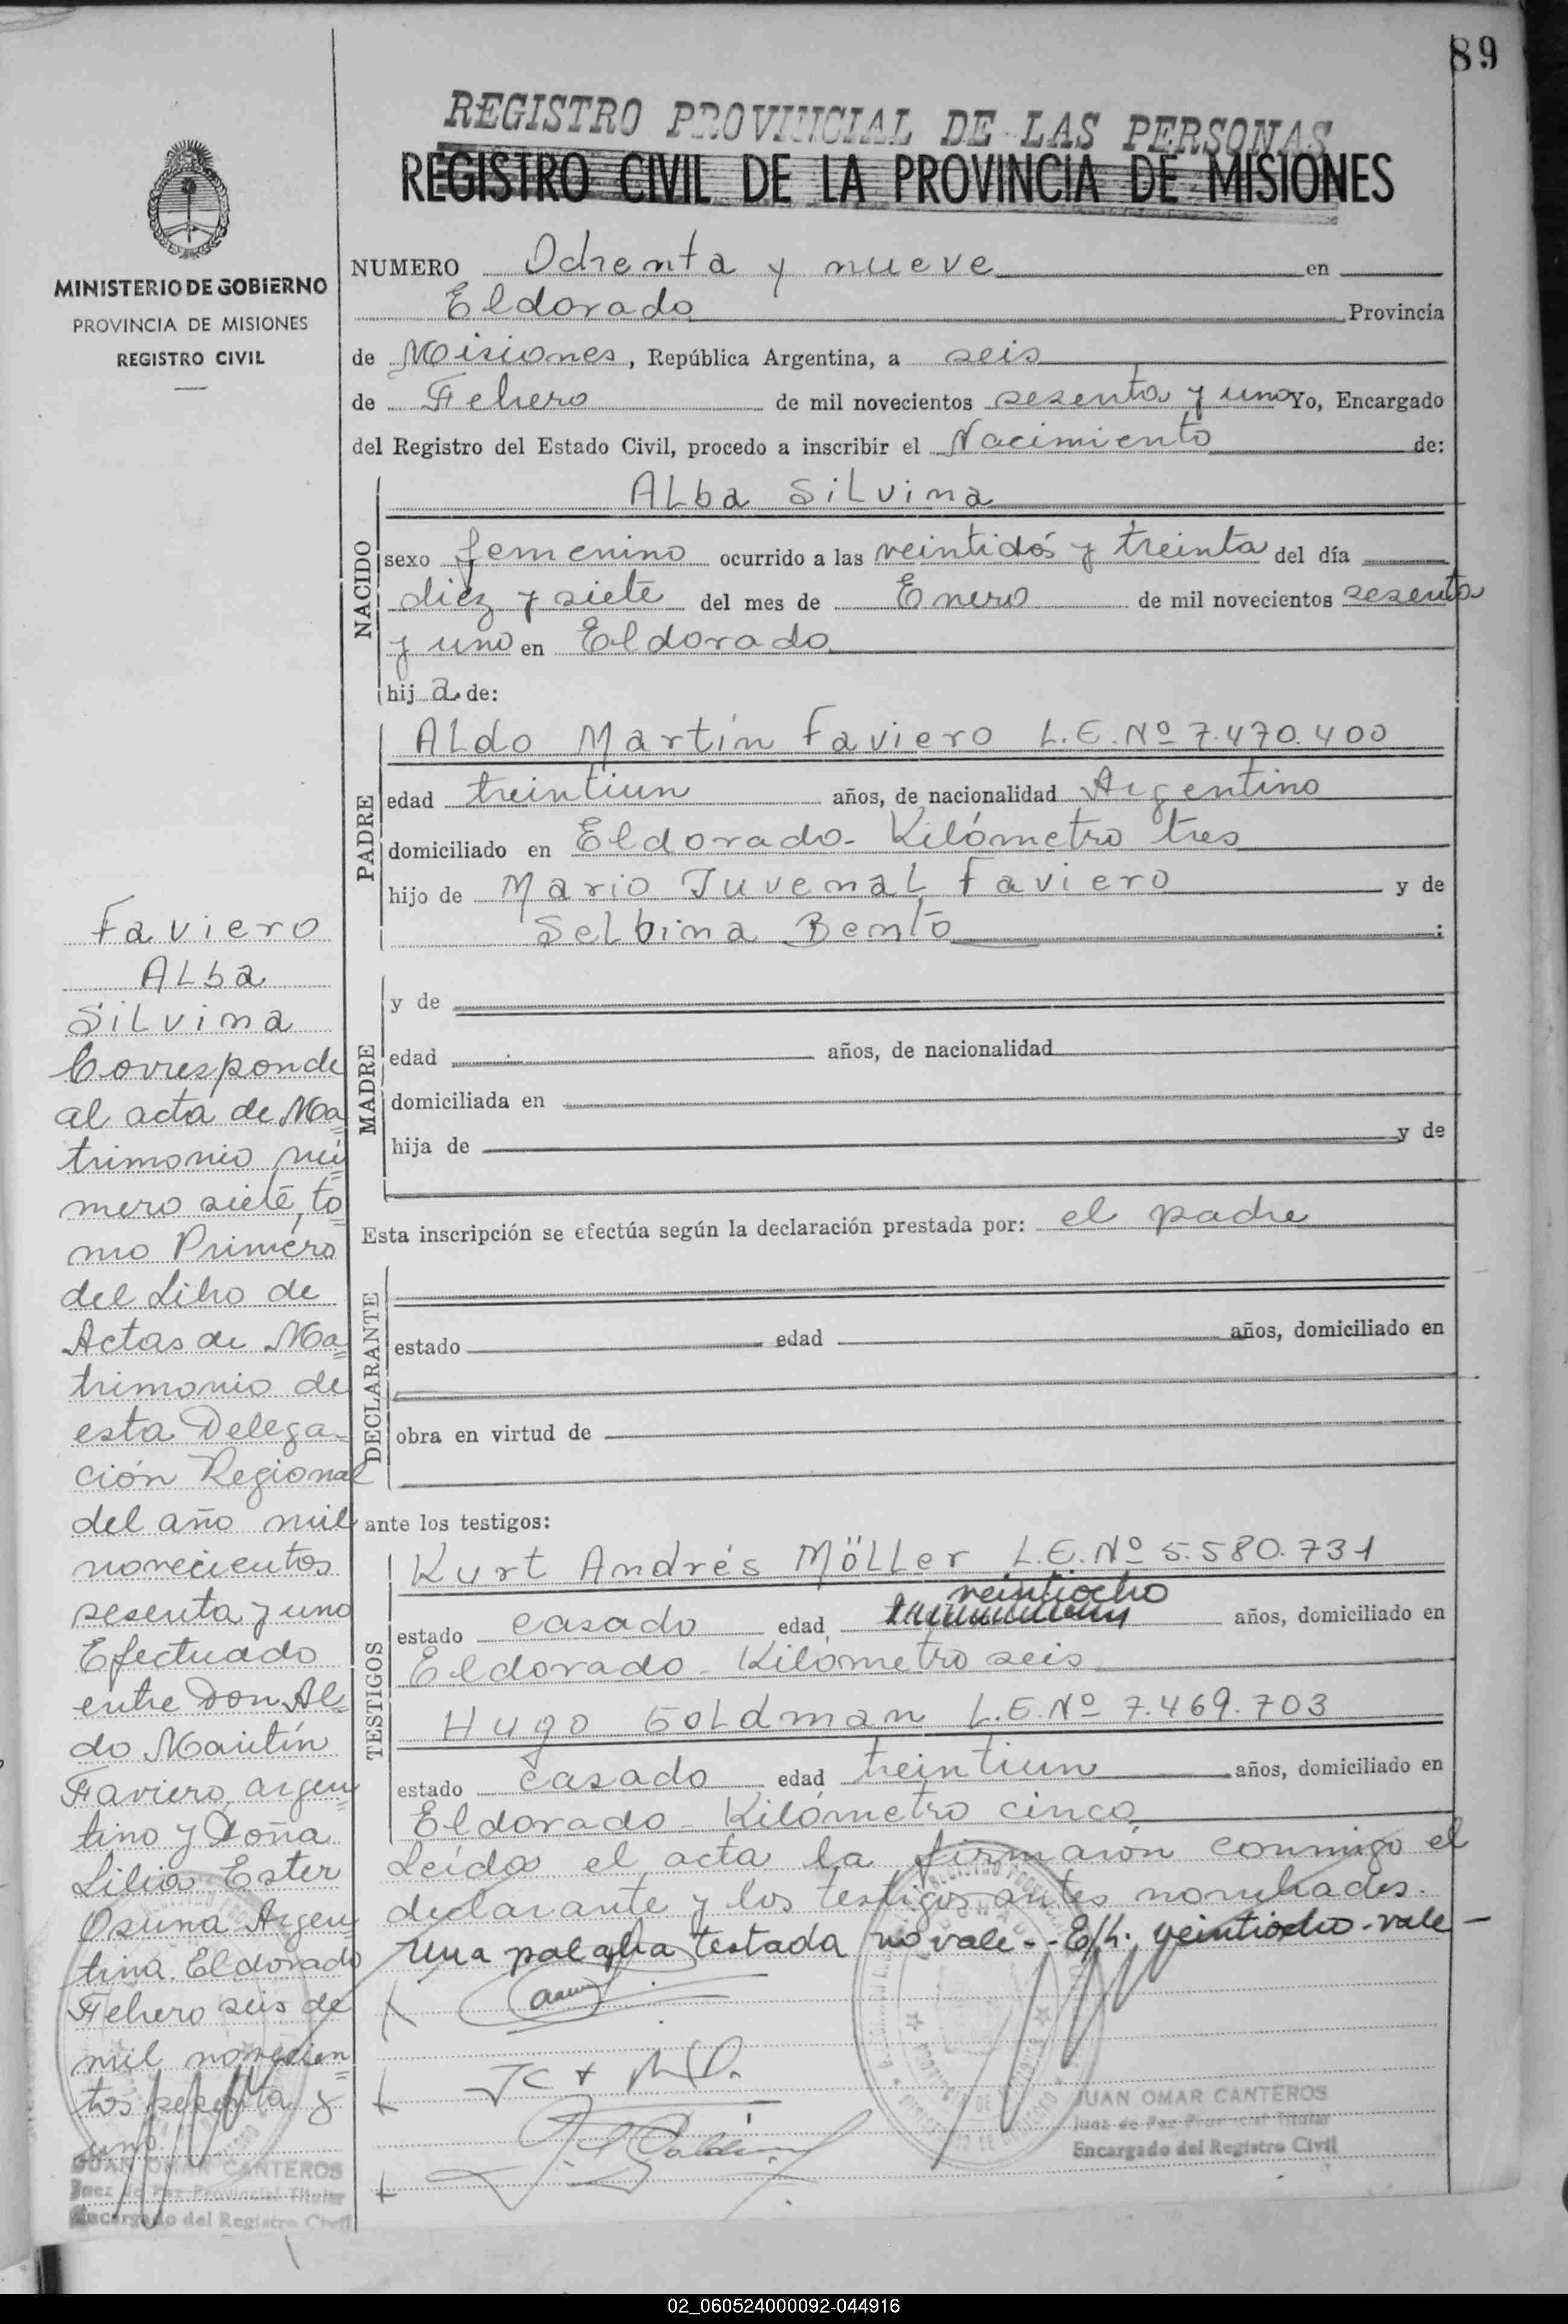 89
REGISTRO PROVINCIAL DE LAS PERSONAS
REGISTRO CIVIL DE LA PROVINCIA DE MISIONES
MINISTERIO DE GOBIERNO
PROVINCIA DE MISIONES
REGISTRO CIVIL
NUMERO Ochenta y nueve en
Eldorado Provincia
de Misiones, República Argentina, a seis
de Febrero de mil novecientos sesenta y uno Yo, Encargado
del Registro del Estado Civil, procedo a inscribir el Nacimiento de:
NACIDO
Alba Silvina
sexo femenino ocurrido a las veintidós y treinta del día
diez y siete del mes de Enero de mil novecientos sesenta
y uno en Eldorado
hij a de:
PADRE
Aldo Martín Faviero L.E. Nº 7.470.400
edad treintiun años, de nacionalidad Argentino
domiciliado en Eldorado - Kilómetro tres
hijo de Mario Juvenal Faviero y de
Selbina Bento :
MADRE
y de
edad años, de nacionalidad
domiciliada en
hija de y de
Esta inscripción se efectúa según la declaración prestada por: el padre
DECLARANTE
estado edad años, domiciliado en
obra en virtud de
ante los testigos:
TESTIGOS
Kurt Andrés Möller L.E. Nº 5.580.731
veintiocho
estado casado edad años, domiciliado en
Eldorado - Kilómetro seis
Hugo Goldman L.E. Nº 7.469.703
estado casado edad treintiun años, domiciliado en
Eldorado - Kilómetro cinco
Leída el acta la firmaron conmigo el
declarante y los testigos antes nombrados.
Una palabra testada no vale - - E/L. veintiocho - vale -
JUAN OMAR CANTEROS
Juez de Paz Provincial Titular
Encargado del Registro Civil
Faviero
Alba
Silvina
Corresponde
al acta de Ma
trimonio nú
mero siete, to
mo Primero
del Libro de
Actas de Ma
trimonio de
esta Delega-
ción Regional
del año mil
novecientos
sesenta y uno
Efectuado
entre Don Al
do Martín
Faviero, argen
tino y Doña
Lilia Ester
Osuna Argen
tina. Eldorado
Febrero seis de
mil novecien
tos sesenta y
uno
JUAN OMAR CANTEROS
Juez de Paz Provincial Titular
Encargado del Registro Civil
02_060524000092-044916